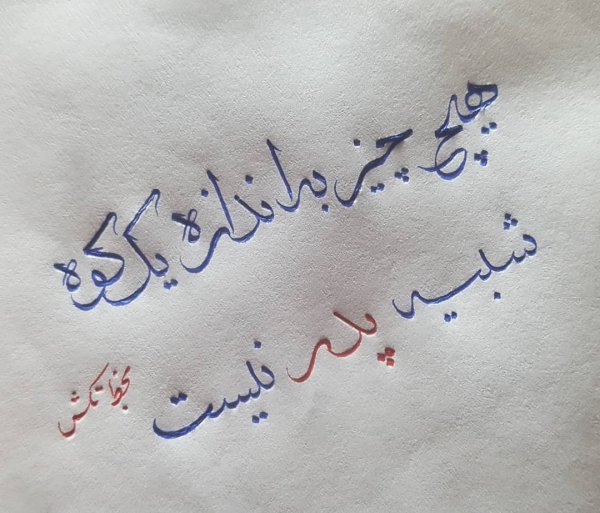 هیچ چیز به اندازه یک کوه
شبیه پدر نیست
بخط آتش